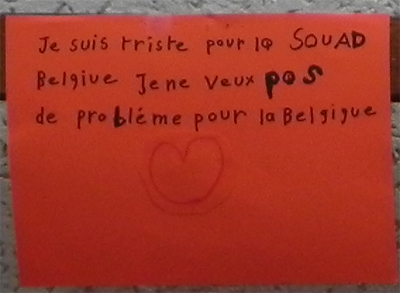 Je suis triste pour la SOUAD
Belgiue Je ne veux pas
de probléme pour la Belgigue